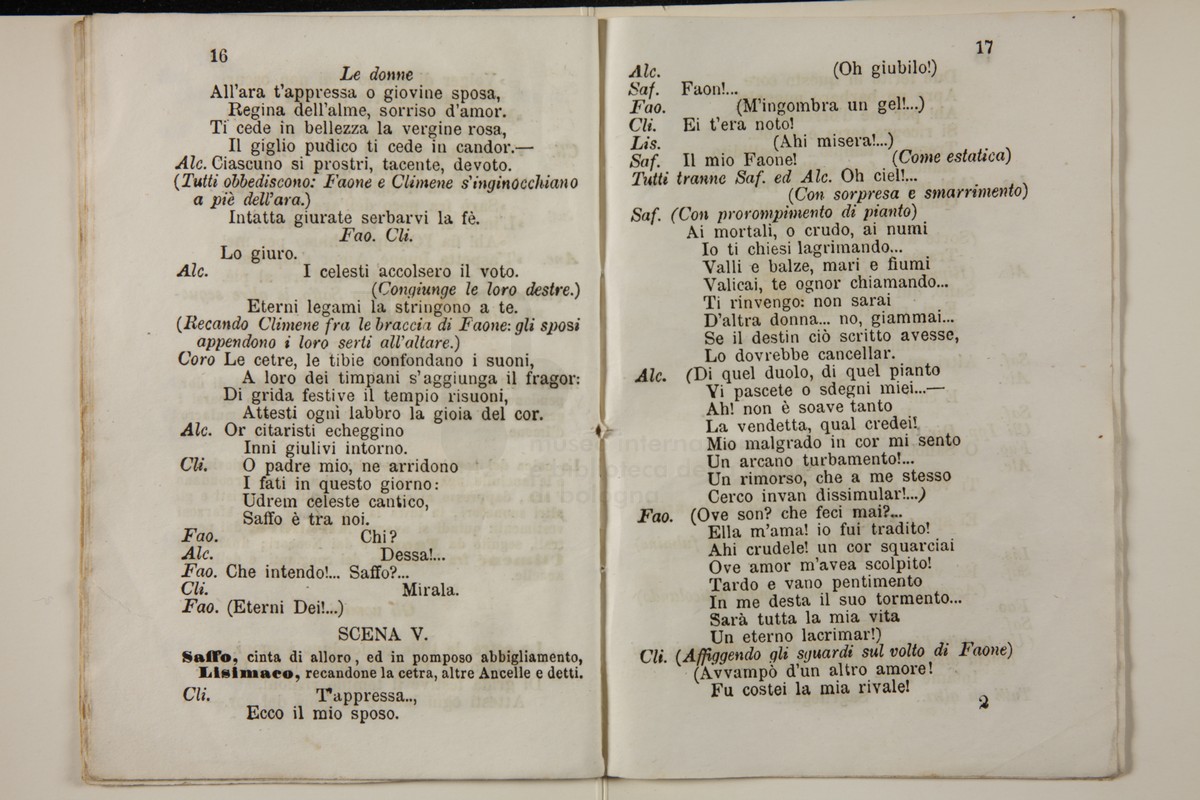 16
Le donne
All'ara t'appressa o giovine sposa,
Regina dell'alme, sorriso d'amor.
Ti cede in bellezza la vergine rosa,
Il giglio pudico ti cede in candor.—
Alc. Ciascuno si prostri, tacente, devoto.
(Tutti obbediscono: Faone e Climene s'inginocchiano
a piè dell'ara.)
Intatta giurate serbarvi la fè.
Fao. Cli.
Lo giuro.
Alc. I celesti accolsero il voto.
(Congiunge le loro destre.)
Eterni legami la stringono a te.
(Recando Climene fra le braccia di Faone: gli sposi
appendono i loro serti all'altare.)
Coro Le cetre, le tibie confondano i suoni,
A loro dei timpani s'aggiunga il fragor:
Di grida festive il tempio risuoni,
Attesti ogni labbro la gioia del cor.
Alc. Or citaristi echeggino
Inni giulivi intorno.
Cli. O padre mio, ne arridono
I fati in questo giorno:
Udrem celeste cantico,
Saffo è tra noi.
Fao. Chi?
Alc. Dessa!...
Fao. Che intendo!... Saffo?...
Cli. Mirala.
Fao. (Eterni Dei!...)
SCENA V.
Saffo, cinta di alloro, ed in pomposo abbigliamento,
Lisimaco, recandone la cetra, altre Ancelle e detti.
Cli. T'appressa..,
Ecco il mio sposo.
17
Alc. (Oh giubilo!)
Saf. Faon!...
Fao. (M'ingombra un gel!...)
Cli. Ei t'era noto!
Lis. (Ahi misera!...)
Saf. Il mio Faone! (Come estatica)
Tutti tranne Saf. ed Alc. Oh ciel!...
(Con sorpresa e smarrimento)
Saf. (Con prorompimento di pianto)
Ai mortali, o crudo, ai numi
Io ti chiesi lagrimando...
Valli e balze, mari e fiumi
Valicai, te ognor chiamando...
Ti rinvengo: non sarai
D'altra donna... no, giammai...
Se il destin ciò scritto avesse,
Lo dovrebbe cancellar.
Alc. (Di quel duolo, di quel pianto
Vi pascete o sdegni miei...—
Ah! non è soave tanto
La vendetta, qual credei!
Mio malgrado in cor mi sento
Un arcano turbamento!...
Un rimorso, che a me stesso
Cerco invan dissimular!...)
Fao. (Ove son? che feci mai?...
Ella m'ama! io fui tradito!
Ahi crudele! un cor squarciai
Ove amor m'avea scolpito!
Tardo e vano pentimento
In me desta il suo tormento...
Sarà tutta la mia vita
Un eterno lacrimar!)
Cli. (Affiggendo gli sguardi sul volto di Faone)
(Avvampò d'un altro amore!
Fu costei la mia rivale!
2